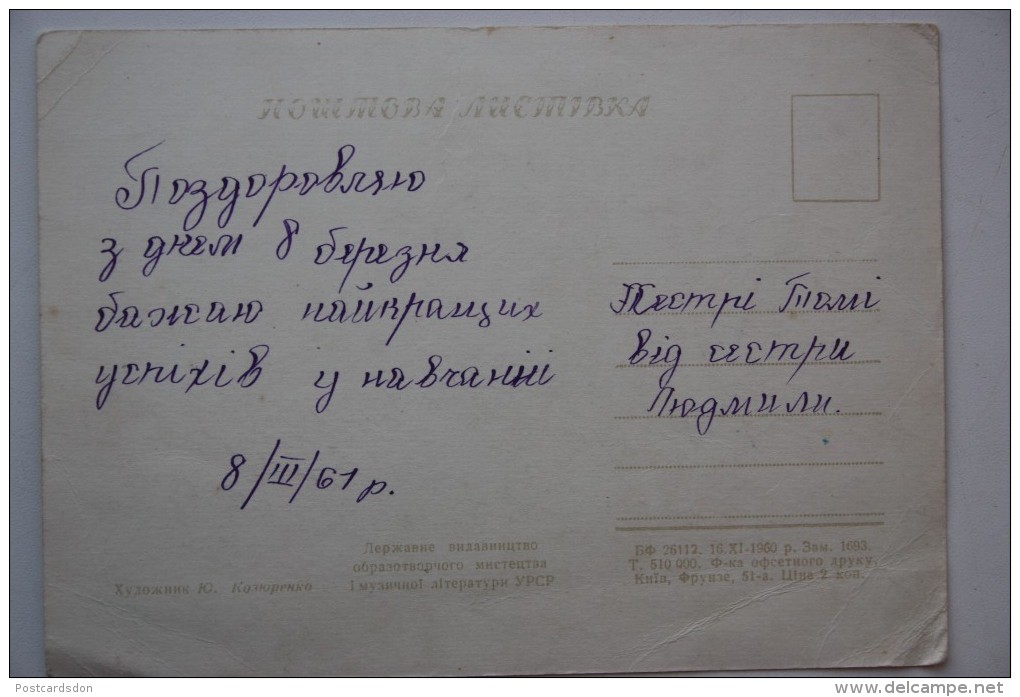 ПОШТОВА ЛИСТІВКА
Поздоровляю
з днем 8 березня
бажаю найкращих
успіхів у навчанні
8/III/61 р.
Сестрі Томі
від сестри
Людмили.
Художник Ю. Казюренко
Державне видавництво
образотворчого мистецтва
і музичної літератури УРСР
БФ 26112. 16.XI-1960 р. Зам. 1693.
Т. 510 000. Ф-ка офсетного друку,
Київ, Фрунзе, 51-а. Ціна 2 коп.
Postcardsdon
www.delcampe.net